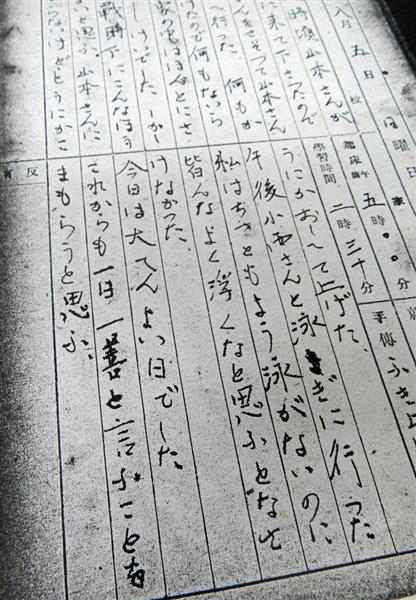 八月五日
日曜日
起床 午前 五時〇〇分
學習時間 二時三十分
手傳 ふき
時頃山本さんが
に来て下さったので
んをさそって山本さん
へ行った。何もか
けたので何もないら
戦時下にこんなほう
と思ふ。山本さんに
ないけどどうにかこ
うにかおしへて上げた、
午後小西さんと泳ぎに行った
私はちっともよう泳がないのに
皆んなよく浮くなと思ふとなさ
けなかった。
反
今日は大へんよい日でした。
これからも一日一善と言ふことを
まもらうと思ふ、